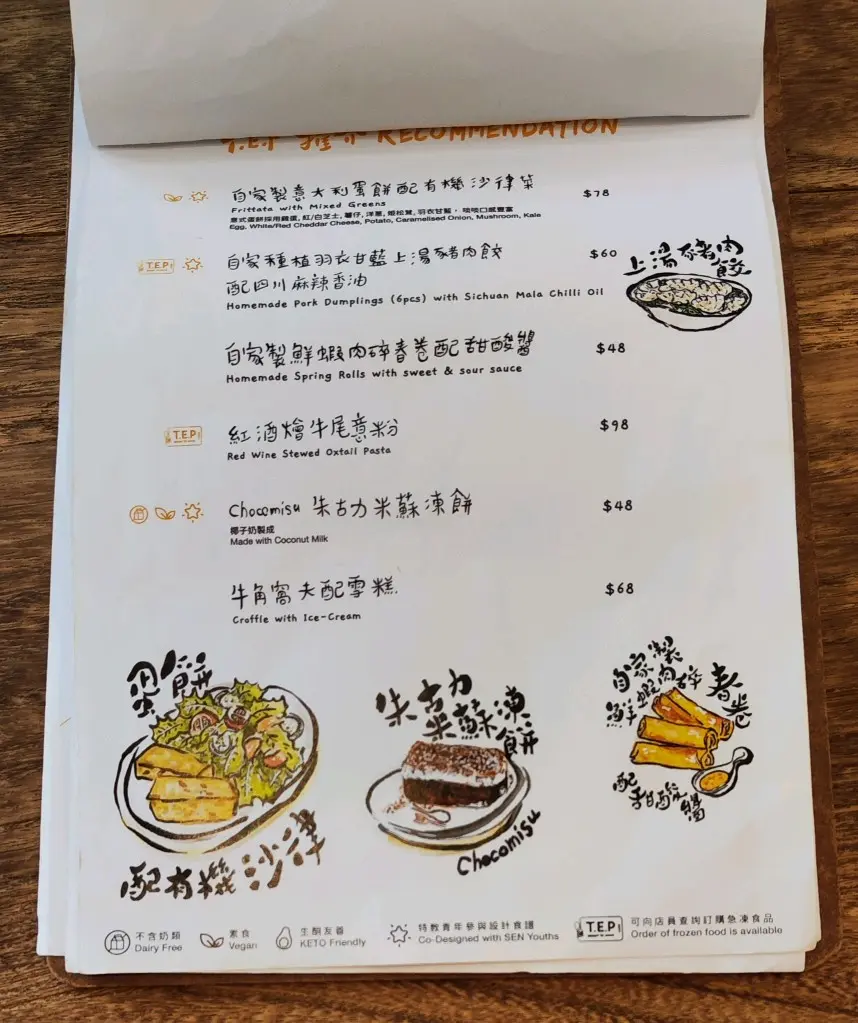 T.E.P 推介 RECOMMENDATION
自家製意大利蛋餅配有機沙律菜 $78
Frittata with Mixed Greens
意式蛋餅採用雞蛋, 紅/白芝士, 薯仔, 洋蔥, 姬松茸, 羽衣甘藍, 啖啖口感豐富
Egg, White/Red Cheddar Cheese, Potato, Caramelised Onion, Mushroom, Kale
T.E.P
自家種植羽衣甘藍上湯豬肉餃 $60
配四川麻辣香油
Homemade Pork Dumplings (6pcs) with Sichuan Mala Chilli Oil
上湯豬肉
餃
自家製鮮蝦肉碎春卷配甜酸醬 $48
Homemade Spring Rolls with sweet & sour sauce
T.E.P
紅酒燴牛尾意粉 $98
Red Wine Stewed Oxtail Pasta
Chocomisu 朱古力米蘇凍餅 $48
椰子奶製成
Made with Coconut Milk
牛角窩夫配雪糕 $68
Croffle with Ice-Cream
蛋餅
配有機沙律
朱古力
米蘇凍
餅
Chocomisu
自家製
鮮蝦肉碎
春卷
配
甜酸醬
不含奶類
Dairy Free
素食
Vegan
生酮友善
KETO Friendly
特教青年參與設計食譜
Co-Designed with SEN Youths
T.E.P
可向店員查詢訂購急凍食品
Order of frozen food is available